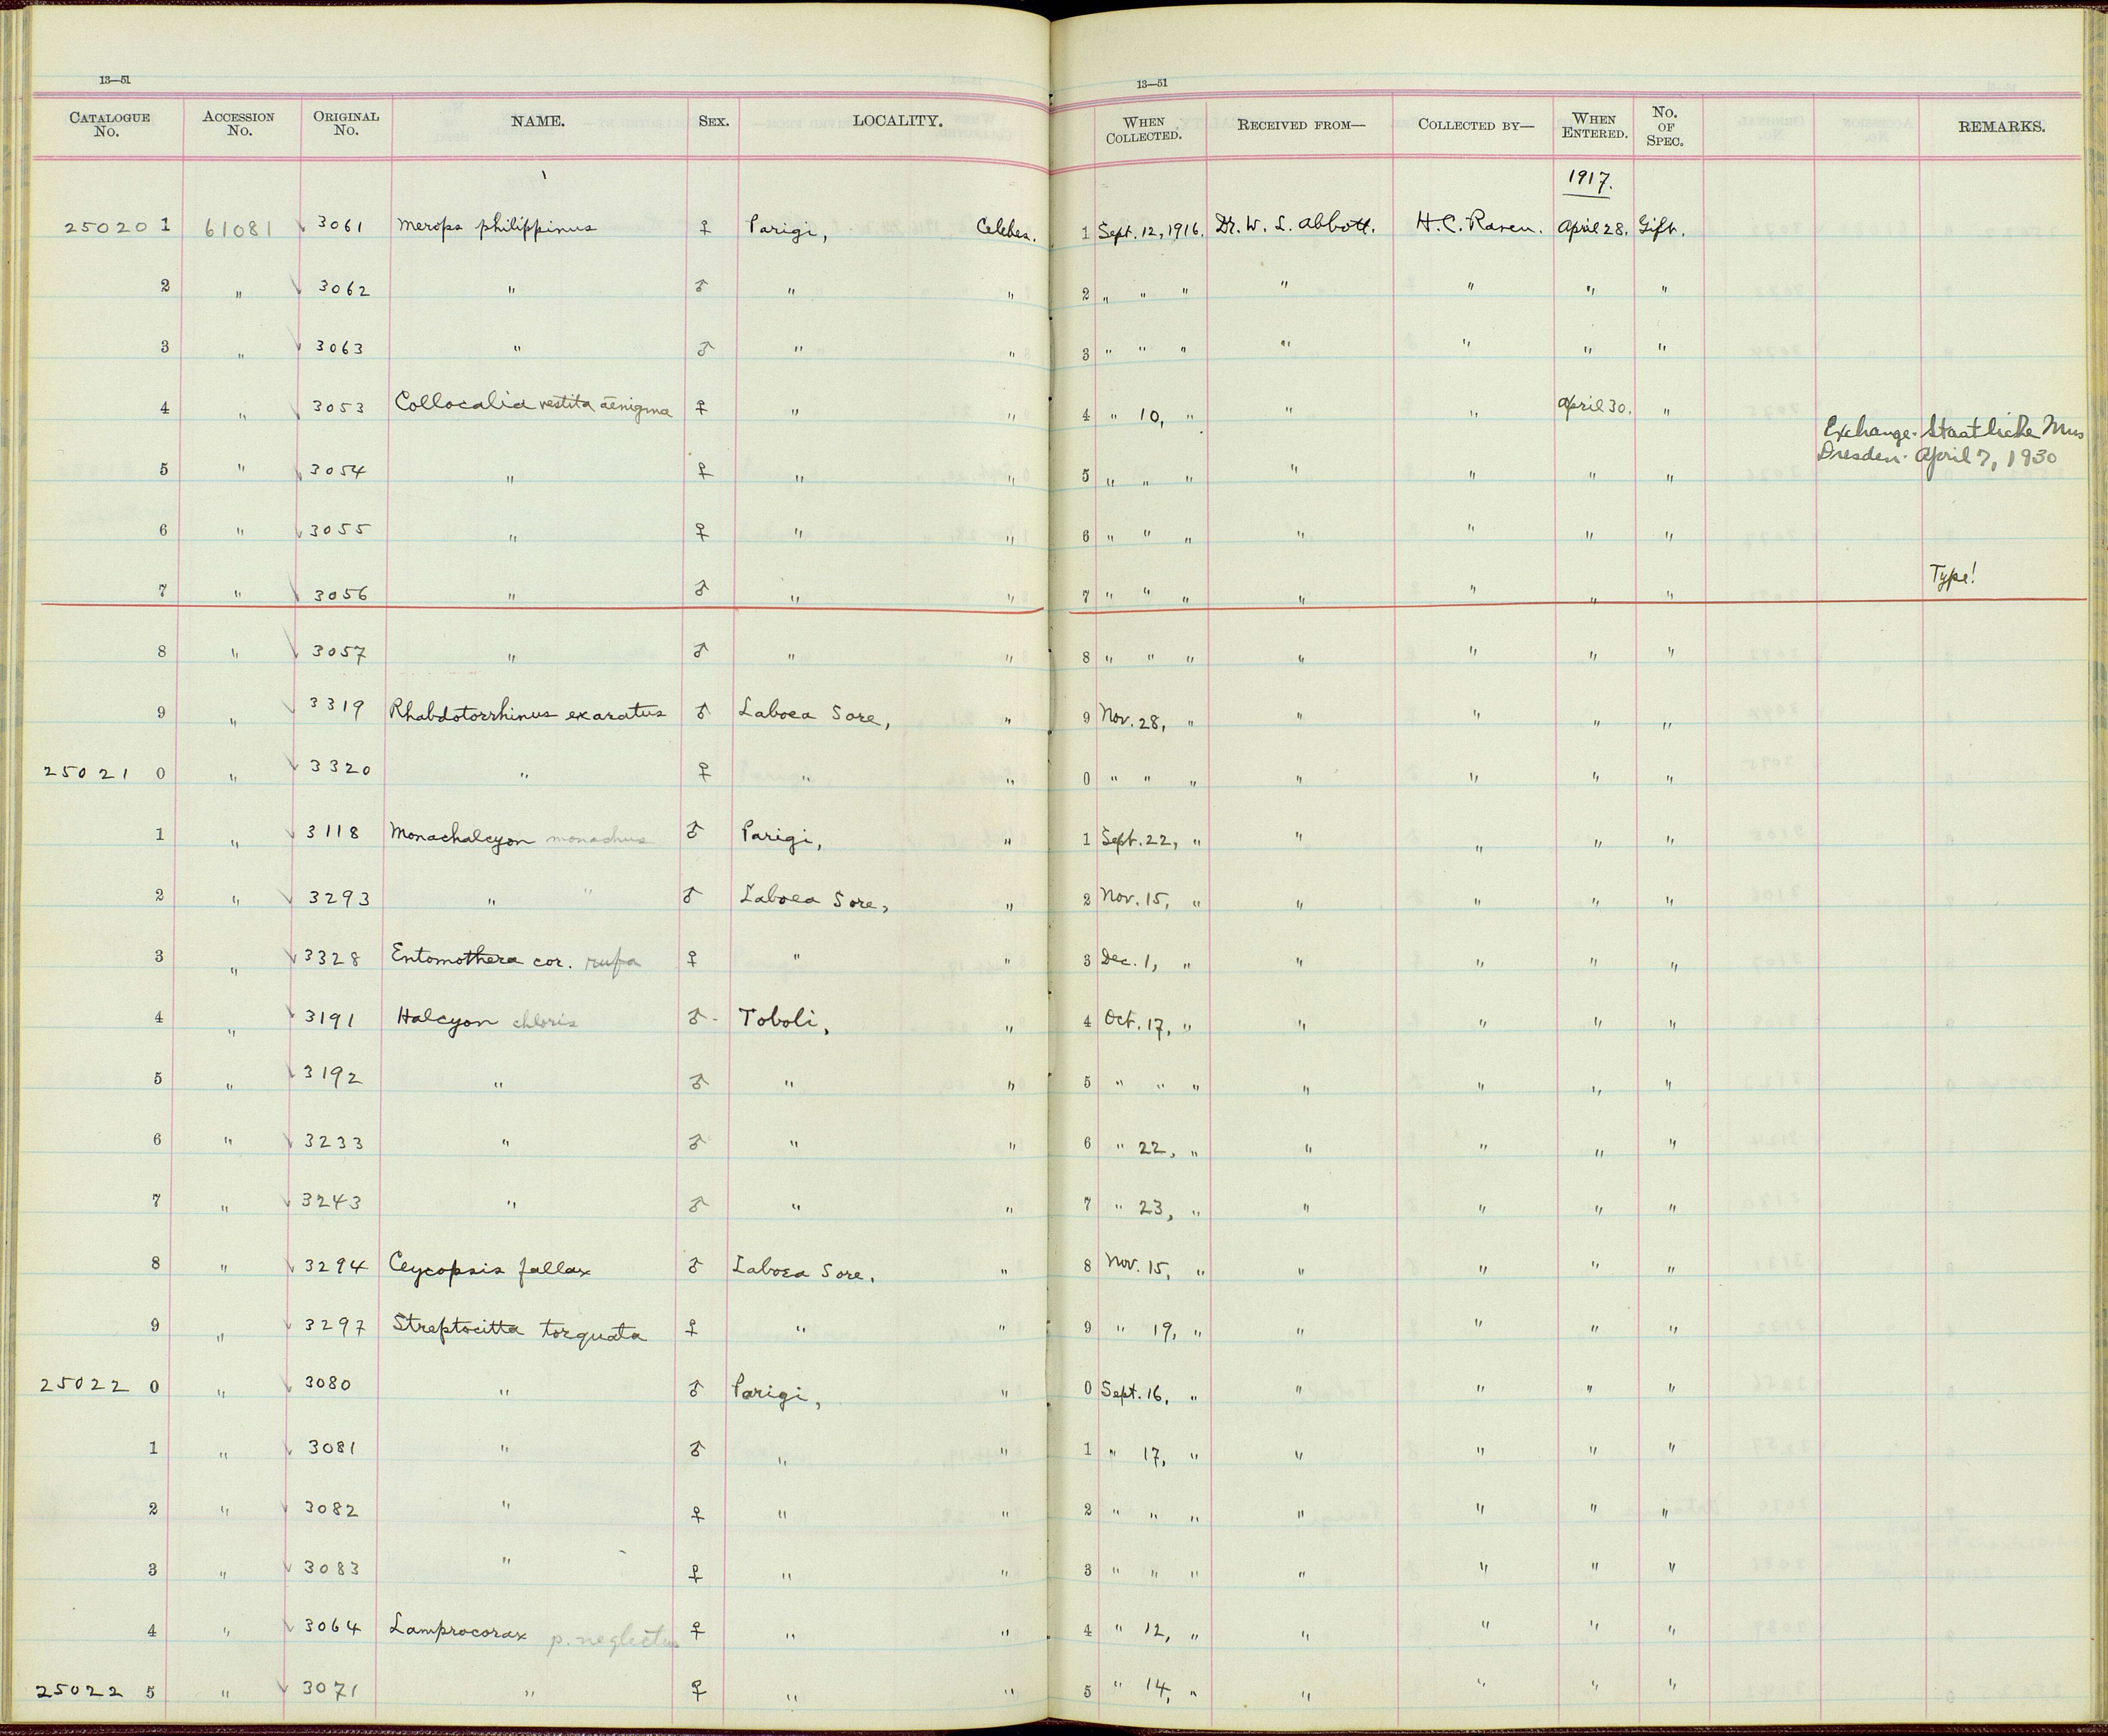 13—51
13—51
CATALOGUE No. ACCESSION No. ORIGINAL No. NAME. SEX. LOCALITY. WHEN COLLECTED. RECEIVED FROM— COLLECTED BY— WHEN ENTERED. No. OF SPEC. REMARKS.
1917.
25020 1 61081 3061 Merops philippinus ♀ Parigi, Celebes. 1 Sept. 12, 1916. Dr. W. L. Abbott. H. C. Raven. April 28. Gift.
2 " 3062 " ♂ " " 2 " " " " " " "
3 " 3063 " ♂ " " 3 " " " " " " "
4 " 3053 Collocalia vestita aenigma ♀ " " 4 " 10, " " " April 30. "
Exchange. Staatliche Mus
Dresden. April 7, 1930
5 " 3054 " ♀ " " 5 " " " " " " "
6 " 3055 " ♀ " " 6 " " " " " " "
7 " 3056 " ♂ " " 7 " " " " " " " Type!
8 " 3057 " ♂ " " 8 " " " " " " "
9 " 3319 Rhabdotorrhinus exaratus ♂ Laboea Sore, " 9 Nov. 28, " " " " "
25021 0 " 3320 " ♀ " " 0 " " " " " " "
1 " 3118 Monachalcyon monachus ♂ Parigi, " 1 Sept. 22, " " " " "
2 " 3293 " " ♂ Laboea Sore, " 2 Nov. 15, " " " " "
3 " 3328 Entomothera cor. rufa ♀ " " 3 Dec. 1, " " " " "
4 " 3191 Halcyon chloris ♂ Toboli, " 4 Oct. 17, " " " " "
5 " 3192 " ♂ " " 5 " " " " " " "
6 " 3233 " ♂ " " 6 " 22, " " " " "
7 " 3243 " ♂ " " 7 " 23, " " " " "
8 " 3294 Ceycopsis fallax ♂ Laboea Sore. " 8 Nov. 15, " " " " "
9 " 3297 Streptocitta torquata ♀ " " 9 " 19, " " " " "
25022 0 " 3080 " ♂ Parigi, " 0 Sept. 16, " " " " "
1 " 3081 " ♂ " " 1 " 17, " " " " "
2 " 3082 " ♀ " " 2 " " " " " " "
3 " 3083 " ♀ " " 3 " " " " " " "
4 " 3064 Lamprocorax p. neglectus ♀ " " 4 " 12, " " " " "
25022 5 " 3071 " ♀ " " 5 " 14, " " " " "